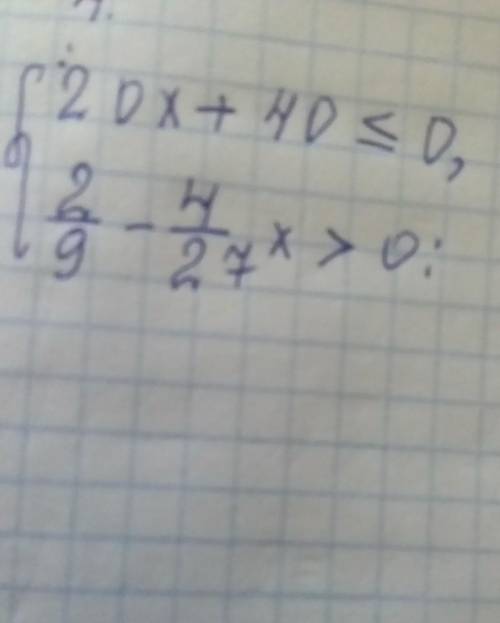 20x + 40 ≤ 0,
2/9 - 4/27 x > 0: